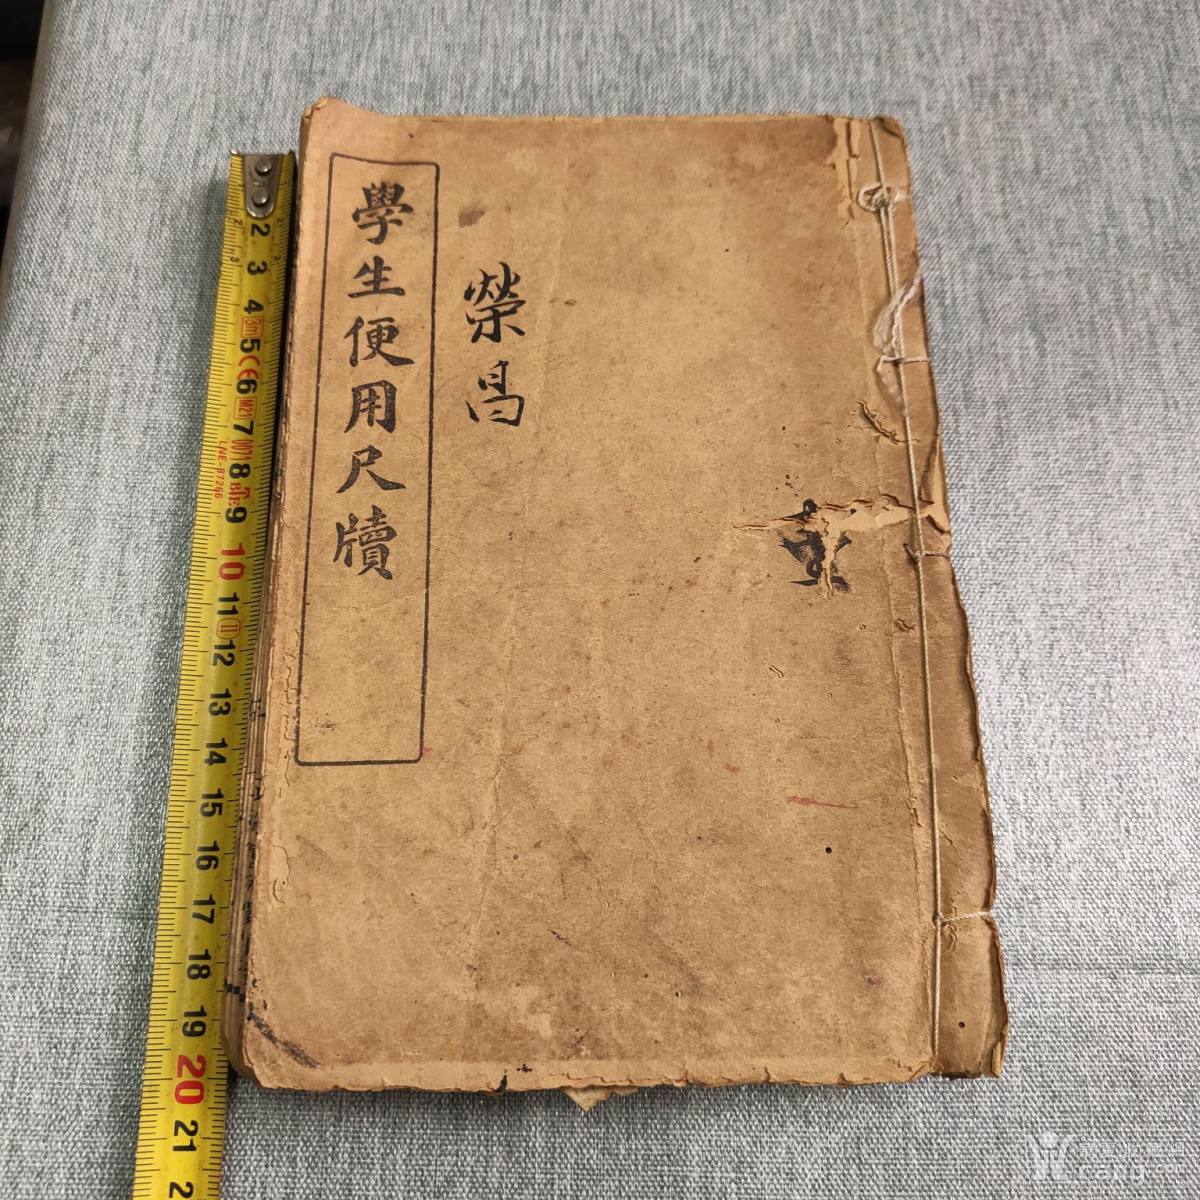 學生便用尺牘
榮昌
2
3
4
3m
5
CE
6
M21
7
0071
8
LNE-87266
9
10
11
II
12
13
14
15
16
17
18
19
20
21
2